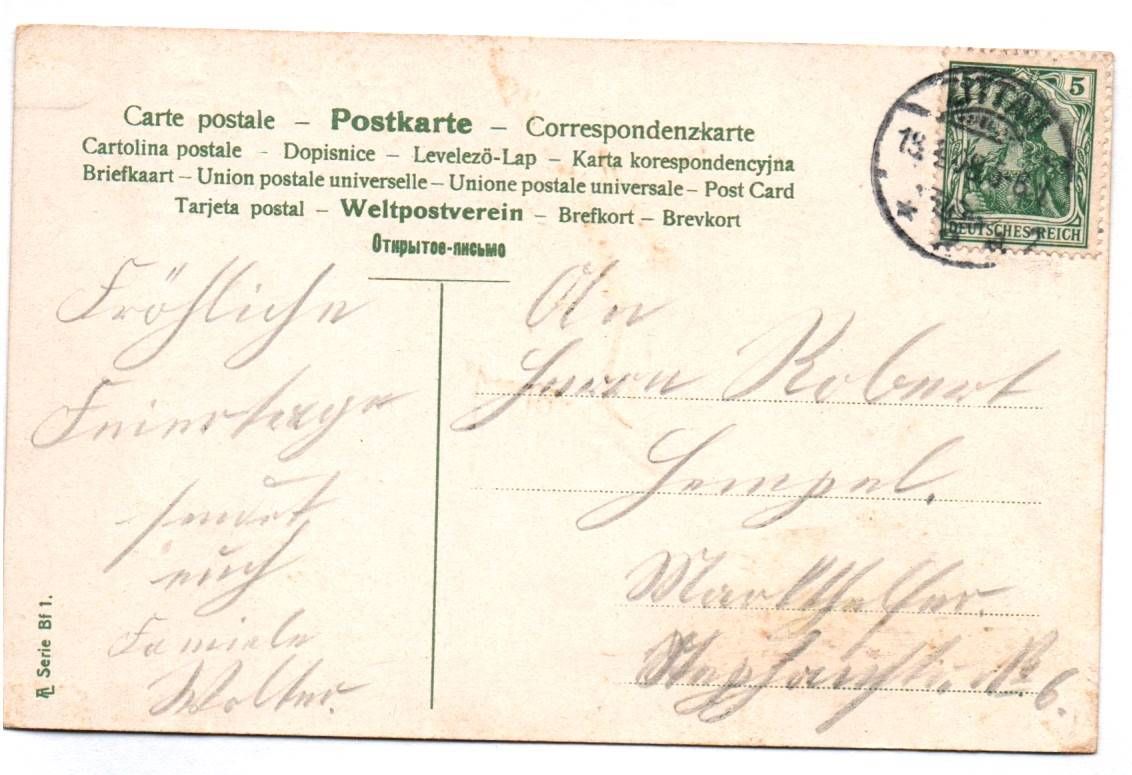 Carte postale – Postkarte – Correspondenzkarte
Cartolina postale - Dopisnice – Levelezö-Lap – Karta korespondencyjna
Briefkaart – Union postale universelle – Unione postale universale – Post Card
Tarjeta postal – Weltpostverein – Brefkort – Brevkort
Открытое-письмо
5
DEUTSCHES REICH
ZITTAU
Fröhliche
Feiertage
sendet
euch
Familie
Wolter.
An
Herrn Robert
Hempel.
No. 6.
Serie Bf 1.